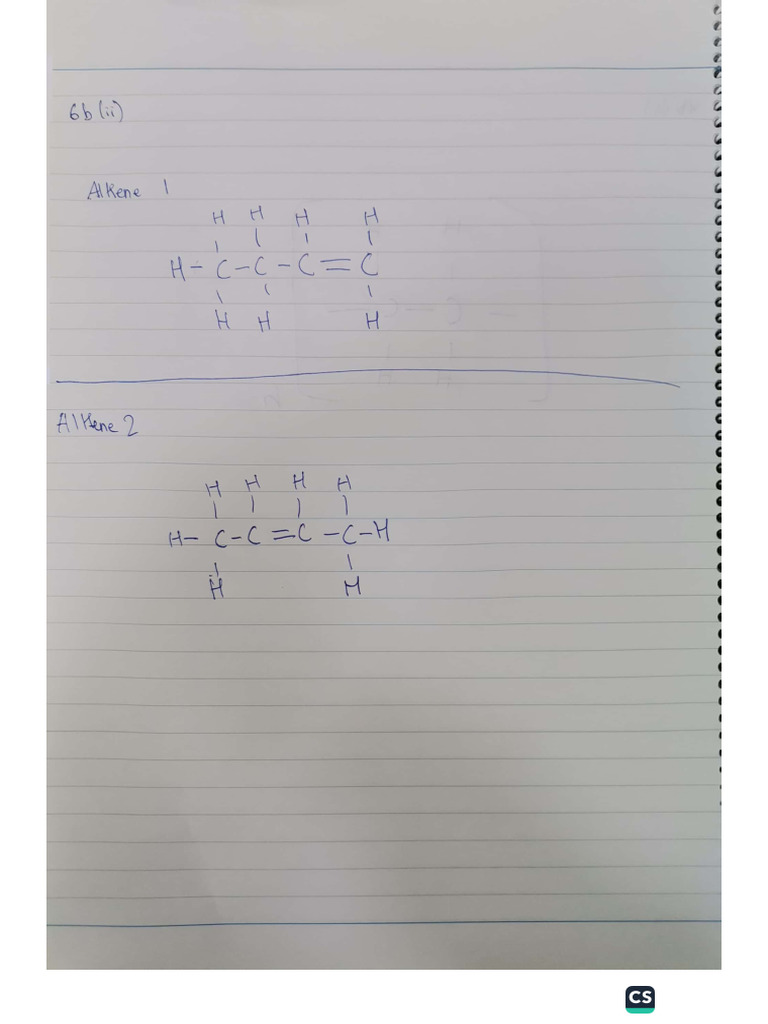 6b(ii)
Alkene 1
H H H H
H - C - C - C = C
H H H
Alkene 2
H H H H
H - C - C = C - C - H
H H
CS